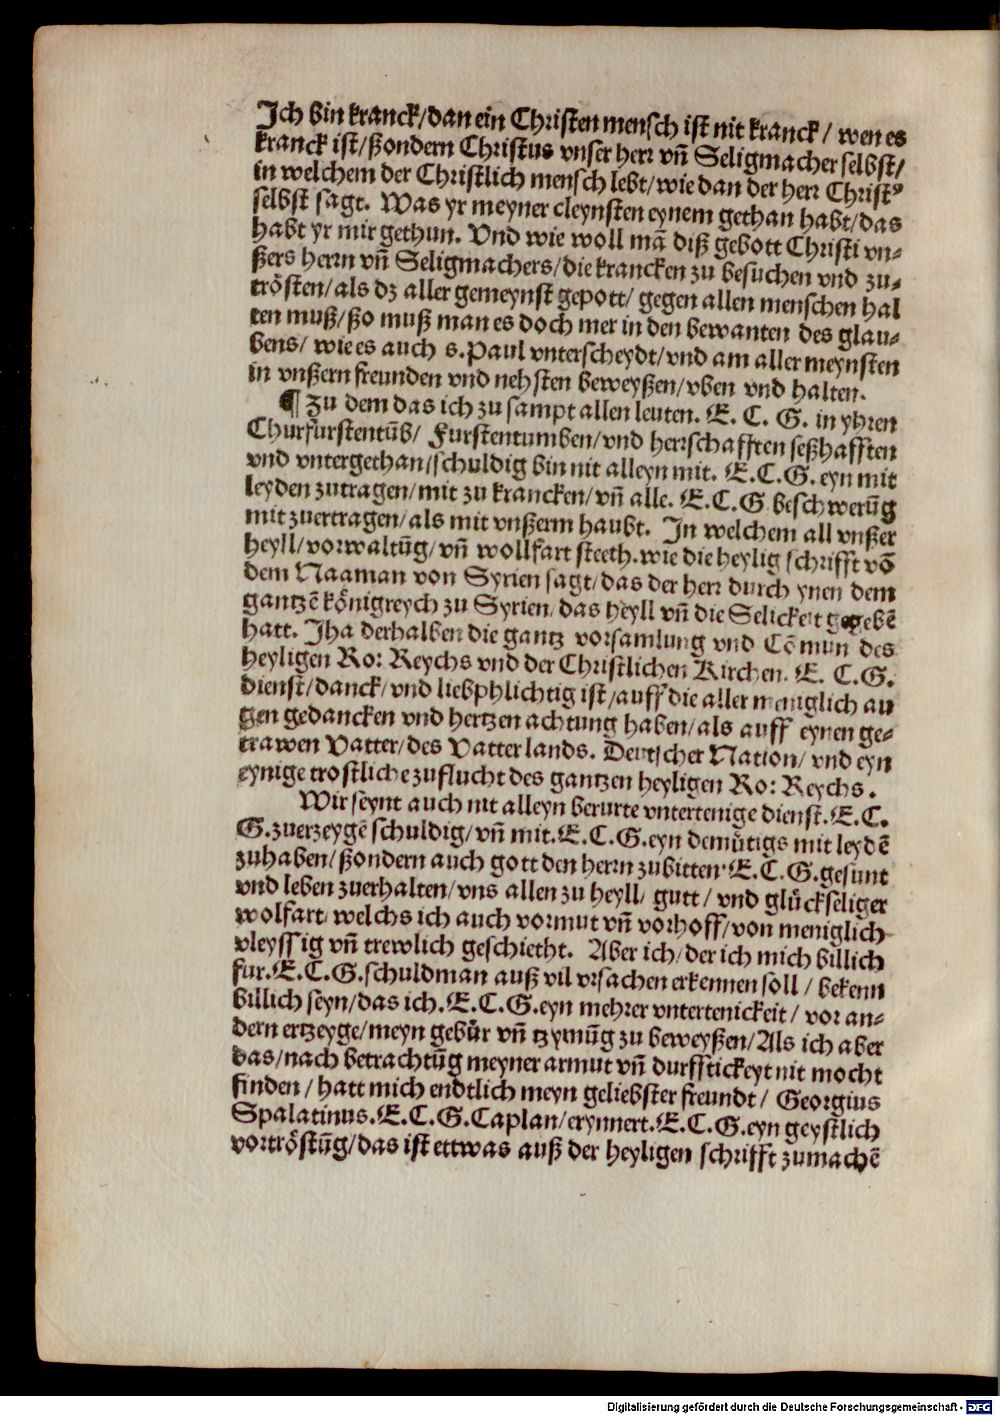 Ich bin kranck/dan ein Christen mensch ist nit kranck/ wen es
kranck ist/ßondern Christus vnser herr vñ Seligmacher selbst/
in welchem der Christlich mensch lebt/wie dan der herr Christꝰ
selbst sagt. Was yr meyner cleynsten eynem gethan habt/das
habt yr mir gethun. Vnd wie woll mā diß gebott Christi vn-
ßers herrn vñ Seligmachers/die krancken zu besuchen vnd zu-
trösten/als dz aller gemeynst gepott/ gegen allen menschen hal
ten muß/ßo muß man es doch mer in den bewanten des glau-
bens/ wie es auch s. Paul vnterscheydt/vnd am aller meynsten
in vnßern freunden vnd nehsten beweyßen/vben vnd halten.
¶ Zu dem das ich zu sampt allen leuten. E. C. G. in yhren
Churfurstentũb/ Furstentumben/vnd herrschafften seßhafften
vnd vntergethan/schuldig bin nit alleyn mit. E.C.G. eyn mit
leyden zutragen/mit zu krancken/vñ alle. E.C.G beschwerũg
mit zuertragen/als mit vnßerm haubt. In welchem all vnßer
heyll/vorwaltũg/vñ wollfart steeth. wie die heylig schrifft vō
dem Naaman von Syrien sagt/das der herr durch ynen dem
gantzē königreych zu Syrien/das heyll vñ die Selickeit gegebē
hatt. Iha derhalben die gantz vorsamlung vnd Cōmun des
heyligen Ro: Reychs vnd der Christlichen Kirchen. E. C.G.
dienst/danck/vnd liebphlichtig ist/auff die aller meniglich au
gen gedancken vnd hertzen achtung haben/als auff eynen ge-
trawen Vatter/des Vatterlands. Deutscher Nation/vnd eyn
eynige trostliche zuflucht des gantzen heyligen Ro: Reychs.
Wir seynt auch nit alleyn berurte vntertenige dienst. E.C.
G.zuerzeygē schuldig/vñ mit.E.C.G.eyn demütigs mit leydē
zuhaben/ßondern auch gott den herrn zubitten.E.C.G.gesunt
vnd leben zuerhalten/vns allen zu heyll/ gutt/ vnd glückseliger
wolfart/welchs ich auch vormut vñ vorhoff/von meniglich
vleyssig vñ trewlich geschietht. Aber ich/der ich mich billich
fur.E.C.G.schuldman auß vil vrsachen erkennen soll/ bekenn
billich seyn/das ich.E.C.G.eyn mehrer vntertenickeit/ vor an-
dern ertzeyge/meyn gebür vñ tzymũg zu beweyßen/Als ich aber
das/nach betrachtũg meyner armut vñ durfftickeyt nit mocht
finden/hatt mich endtlich meyn geliebster freundt/ Georgius
Spalatinus.E.C.G.Caplan/erynnert.E.C.G.eyn geystlich
vortröstũg/das ist ettwas auß der heyligen schrifft zumachē
Digitalisierung gefördert durch die Deutsche Forschungsgemeinschaft - DFG